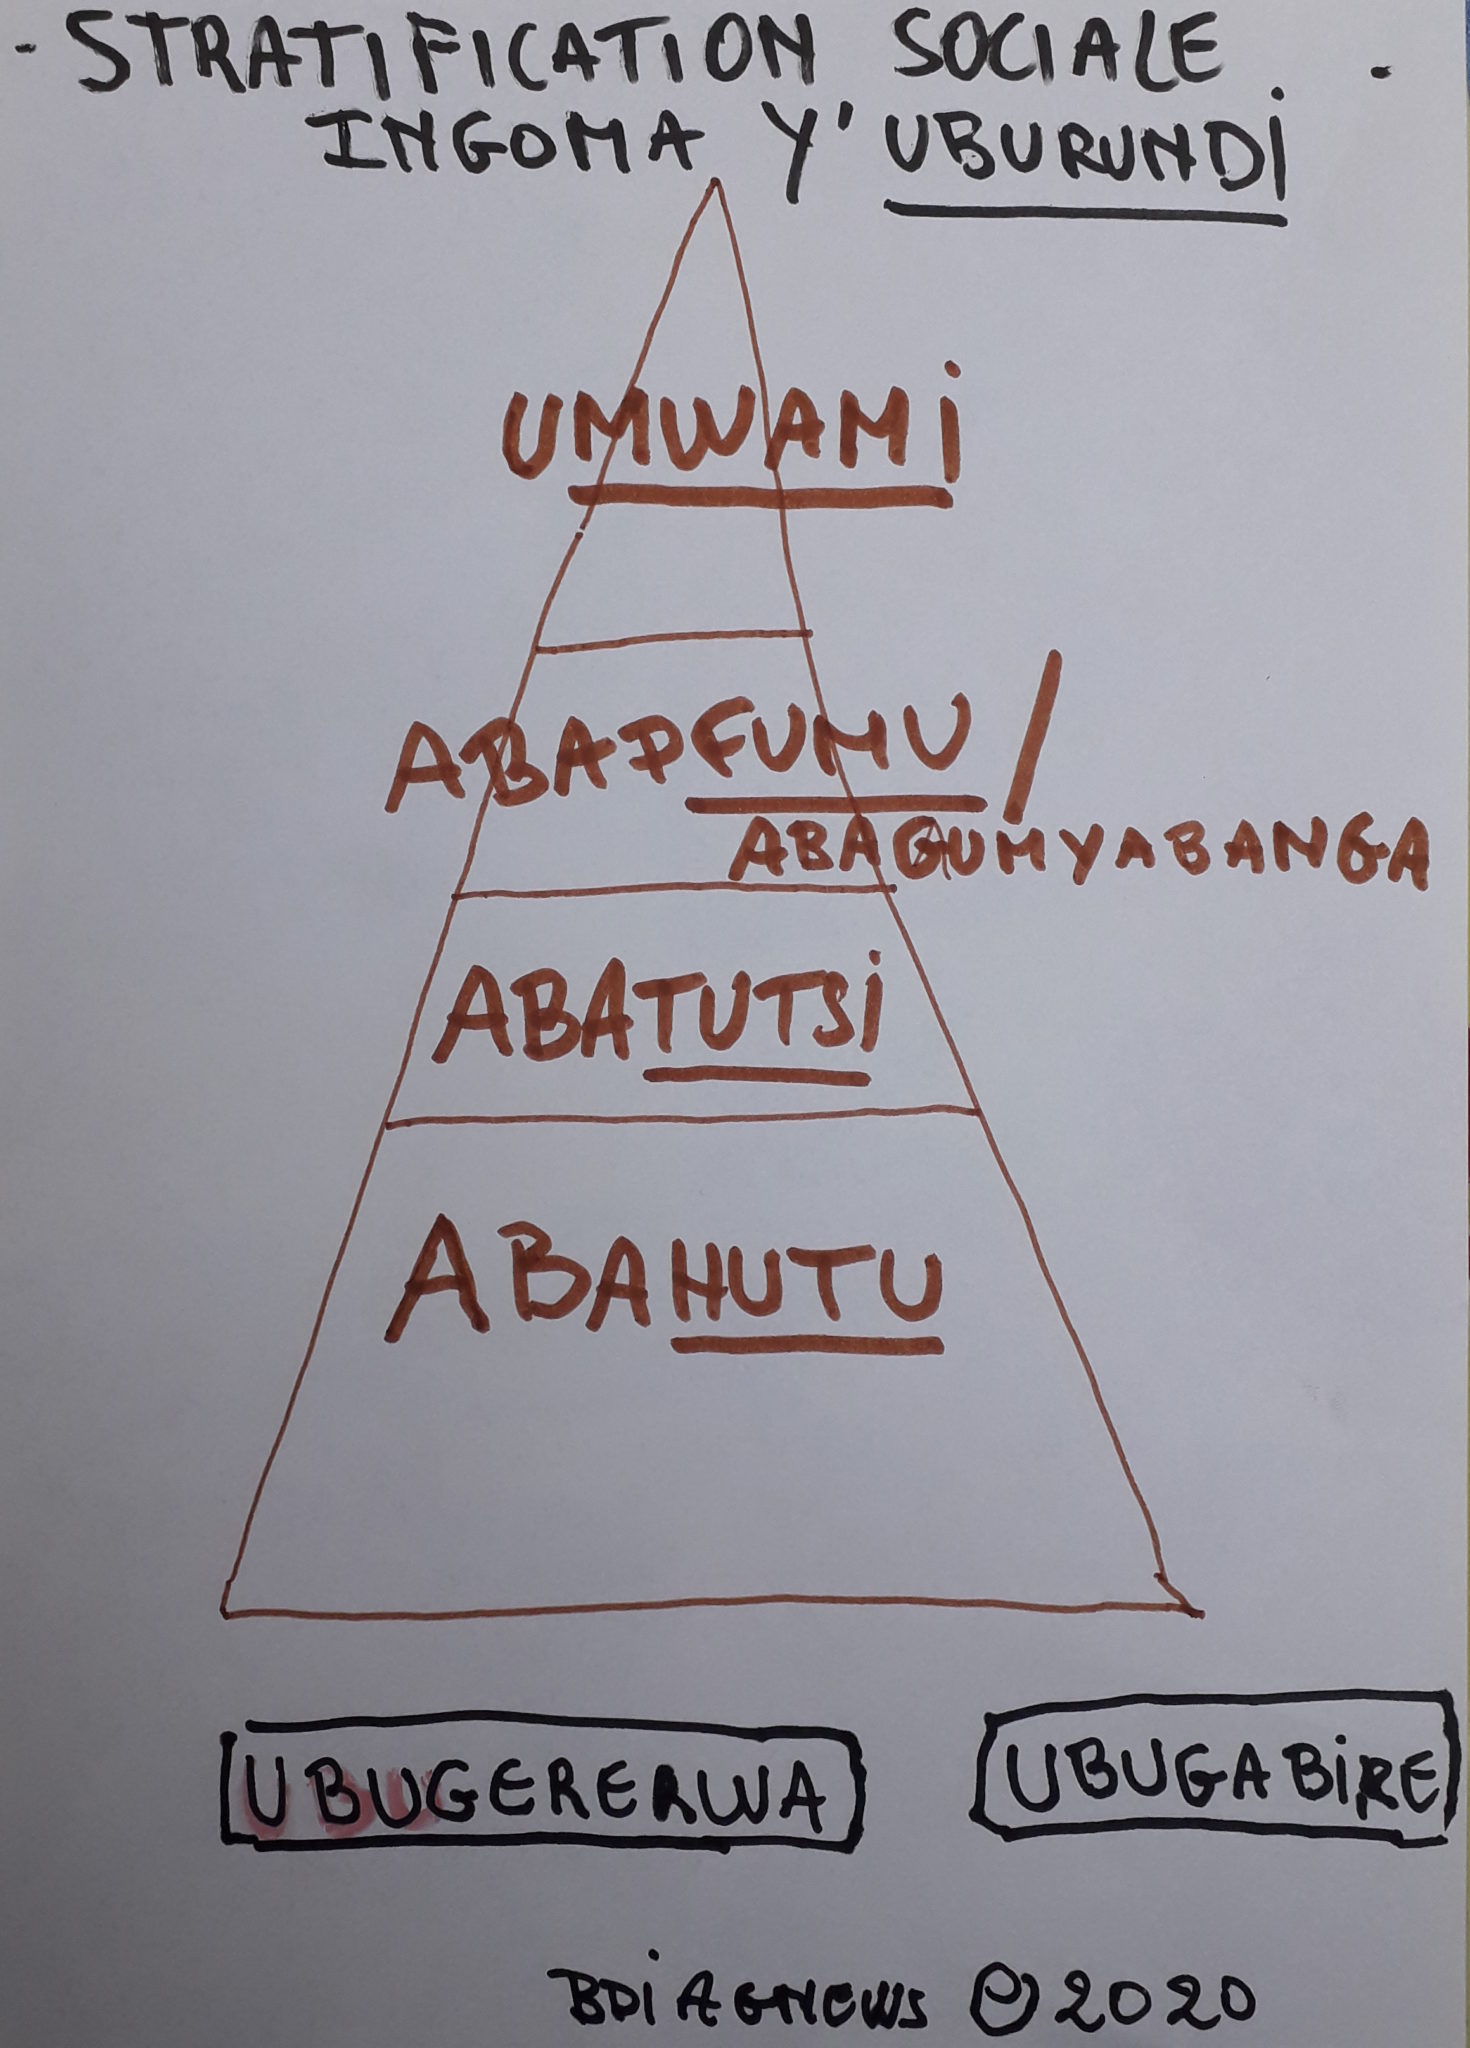 - STRATIFICATION SOCIALE .
INGOMA Y' UBURUNDI
UMWAMI
ABAPFUMU /
ABAGUMYABANGA
ABATUTSI
ABAHUTU
UBUGERERWA
UBUGABIRE
BDIAGNEWS © 2020